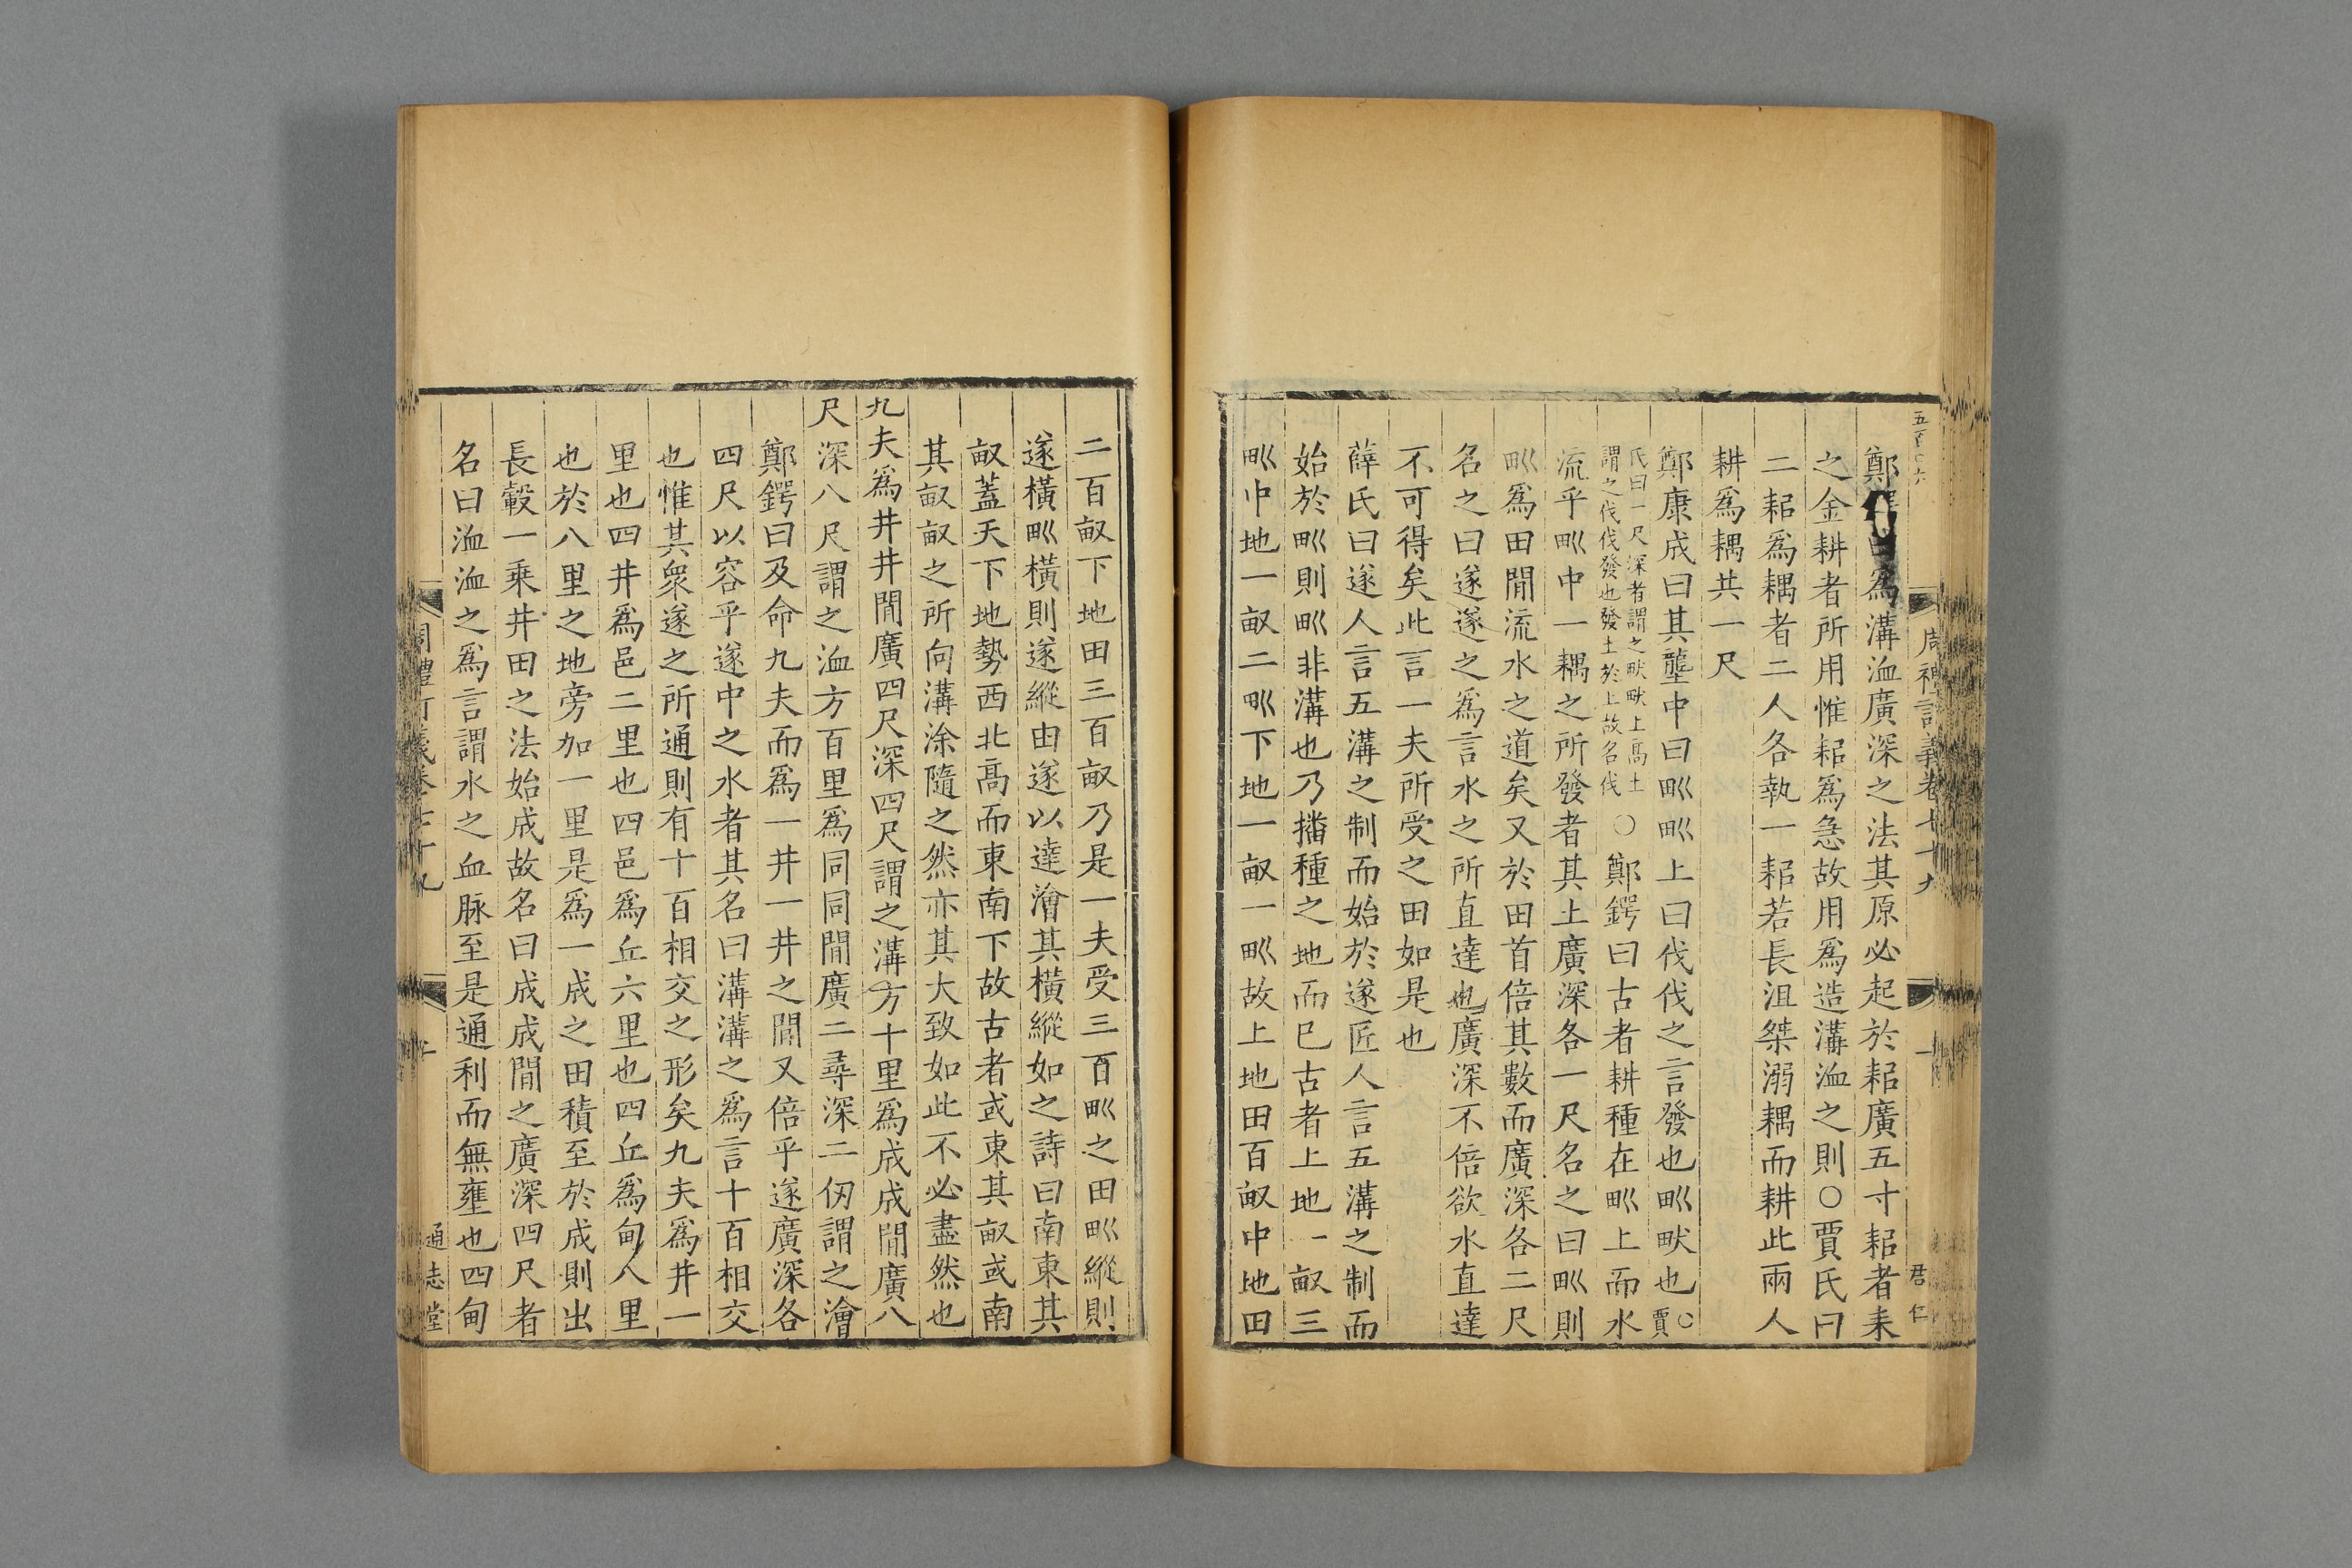 五百六
周禮訂義卷七十九
君仁
鄭 爲溝洫廣深之法其原必起於耜廣五寸耜者耒
之金耕者所用惟耜爲急故用爲造溝洫之則○賈氏曰
二耜爲耦者二人各執一耜若長沮桀溺耦而耕此兩人
耕爲耦共一尺
鄭康成曰其壟中曰甽甽上曰伐伐之言發也甽畎也○賈
氏曰一尺深者謂之畎畎上高土
謂之伐伐發也發土於上故名伐
○鄭鍔曰古者耕種在甽上而水
流乎甽中一耦之所發者其土廣深各一尺名之曰甽則
甽爲田閒流水之道矣又於田首倍其數而廣深各二尺
名之曰遂遂之爲言水之所直達也廣深不倍欲水直達
不可得矣此言一夫所受之田如是也
薛氏曰遂人言五溝之制而始於遂匠人言五溝之制而
始於甽則甽非溝也乃播種之地而已古者上地一畝三
甽中地一畝二甽下地一畝一甽故上地田百畝中地田
二百畝下地田三百畝乃是一夫受三百甽之田甽縱則
遂橫甽橫則遂縱由遂以達澮其橫縱如之詩曰南東其
畝蓋天下地勢西北高而東南下故古者或東其畝或南
其畝畝之所向溝涂隨之然亦其大致如此不必盡然也
九夫爲井井閒廣四尺深四尺謂之溝方十里爲成成閒廣八
尺深八尺謂之洫方百里爲同同閒廣二尋深二仞謂之澮
鄭鍔曰及命九夫而爲一井一井之閒又倍乎遂廣深各
四尺以容乎遂中之水者其名曰溝溝之爲言十百相交
也惟其衆遂之所通則有十百相交之形矣九夫爲井一
里也四井爲邑二里也四邑爲丘六里也四丘爲甸八里
也於八里之地旁加一里是爲一成之田積至於成則出
長轂一乘井田之法始成故名曰成成閒之廣深四尺者
名曰洫洫之爲言謂水之血脉至是通利而無壅也四甸
周禮訂義卷七十九
通志堂